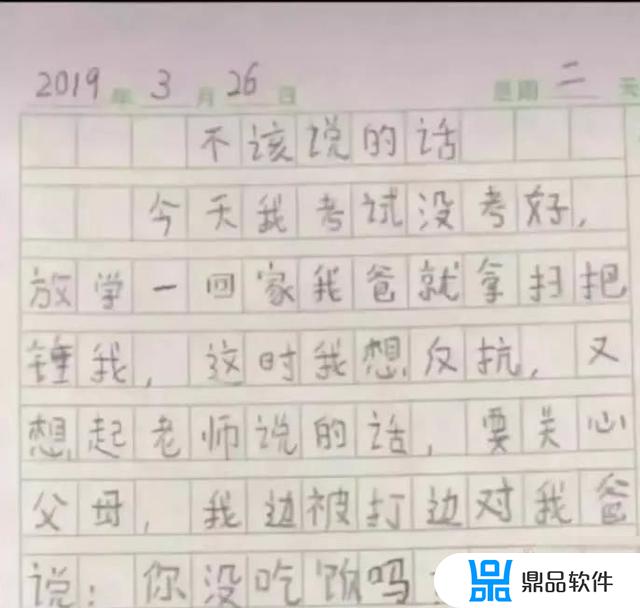 2019年3月26日 星期二 天
不该说的话
今天我考试没考好,
放学一回家我爸就拿扫把
锤我,这时我想反抗,又
想起老师说的话,要关心
父母,我边被打边对我爸
说:你没吃饭吗
鼎品软件